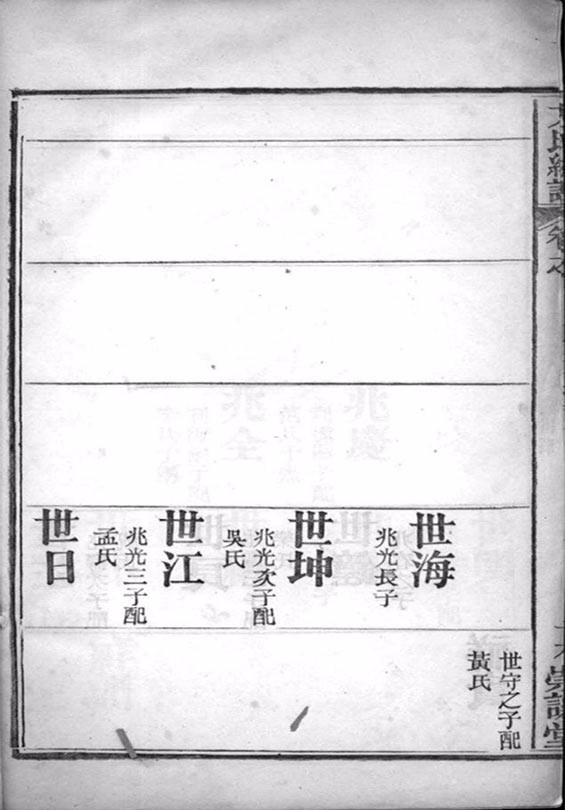 世海
兆光長子
世坤
兆光次子配
吳氏
世江
兆光三子配
孟氏
世日
世守之子配
黃氏